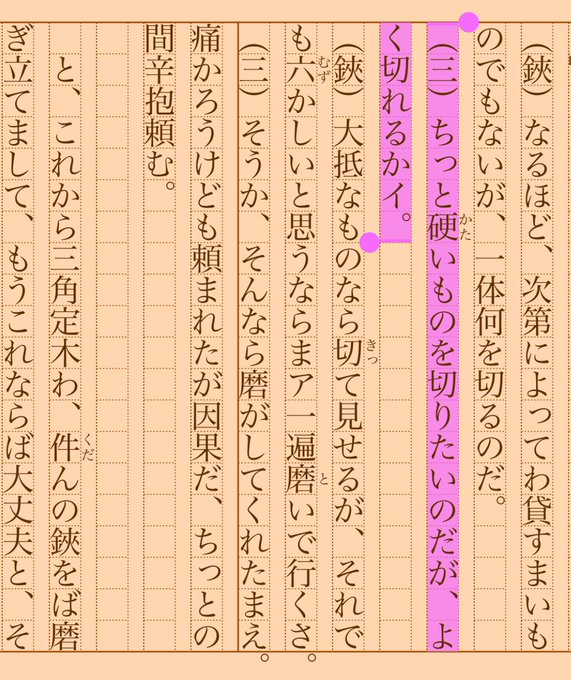 （鋏）なるほど、次第によってわ貸すまいも
のでもないが、一体何を切るのだ。
（三）ちっと硬いものを切りたいのだが、よ
かた
く切れるかイ。
（鋏）大抵なものなら切て見せるが、それで
きっ
むず
も六かしいと思うならまア一遍磨いで行くさ。
と
（三）そうか、そんなら磨がしてくれたまえ。
痛かろうけども頼まれたが因果だ、ちっとの
間辛抱頼む。
と、これから三角定木わ、件んの鋏をば磨
くだ
ぎ立てまして、もうこれならば大丈夫と、そ